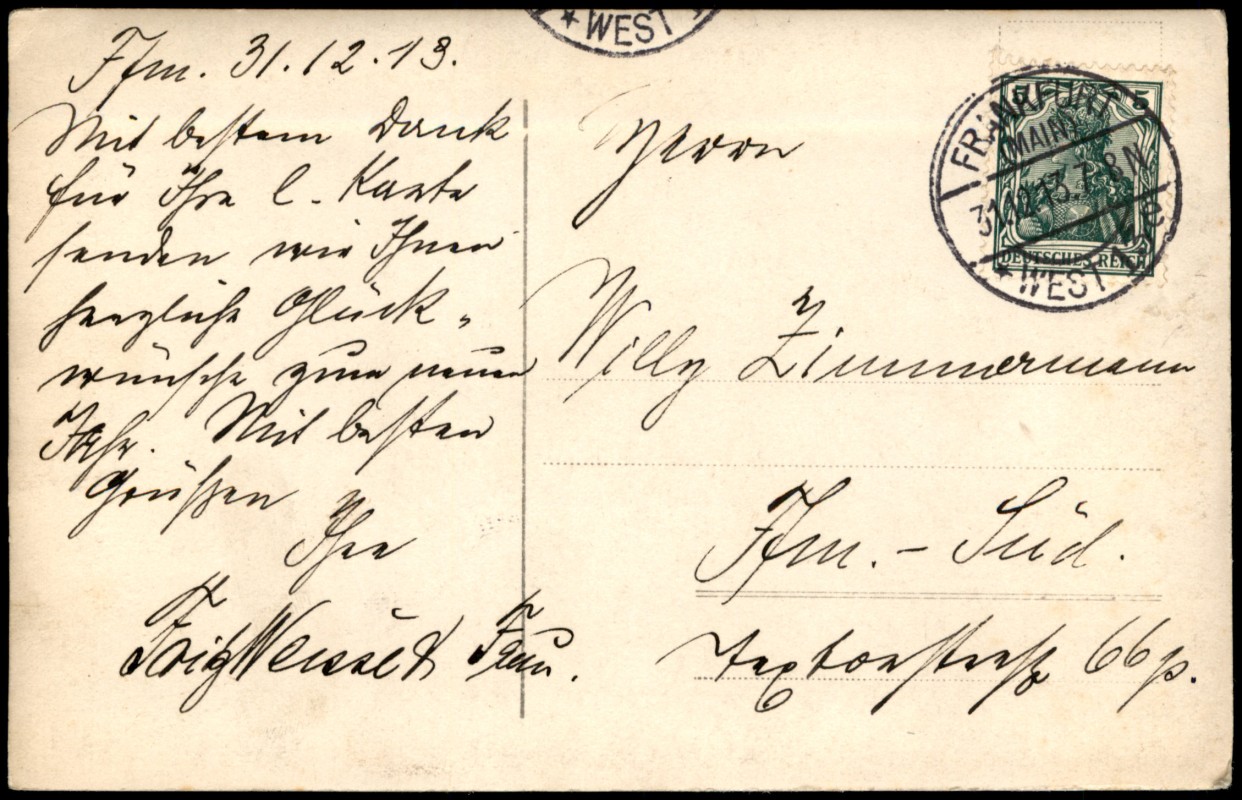 WEST
Ffm. 31.12.13.
Mit bestem Dank
für Ihre l. Karte
senden wir Ihnen
herzliche Glück-
wünsche zum neuen
Jahr. Mit besten
Grüßen
Ihre
Fritz & Frau.
Herrn
Willy Zimmermann
Ffm. - Süd.
Textorstraße 66 p.
5 5
DEUTSCHES REICH
FRANKFURT
(MAIN)
31.12.13.7-8N.
WEST